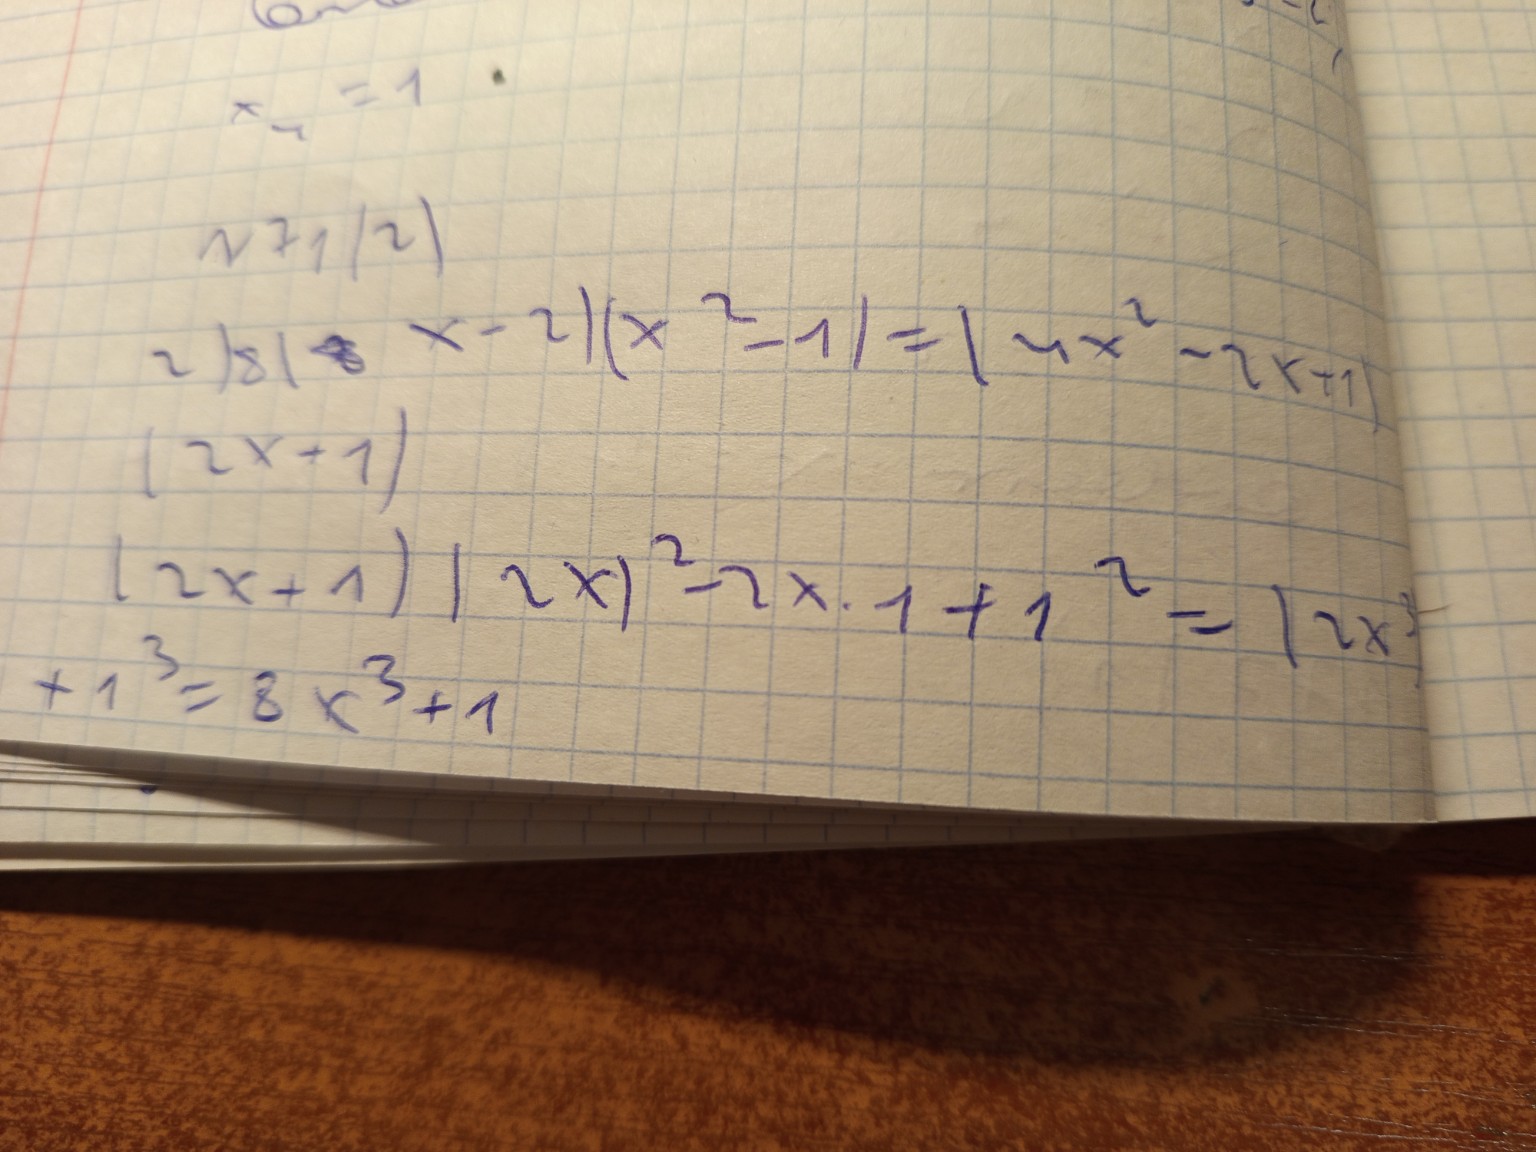 x₄ = 1
N71(2)
2) 8(x-2)(x²-1) = (4x²-2x+1)
(2x+1)
(2x+1)(2x)²-2x·1+1² = (2x³
+1³ = 8x³+1